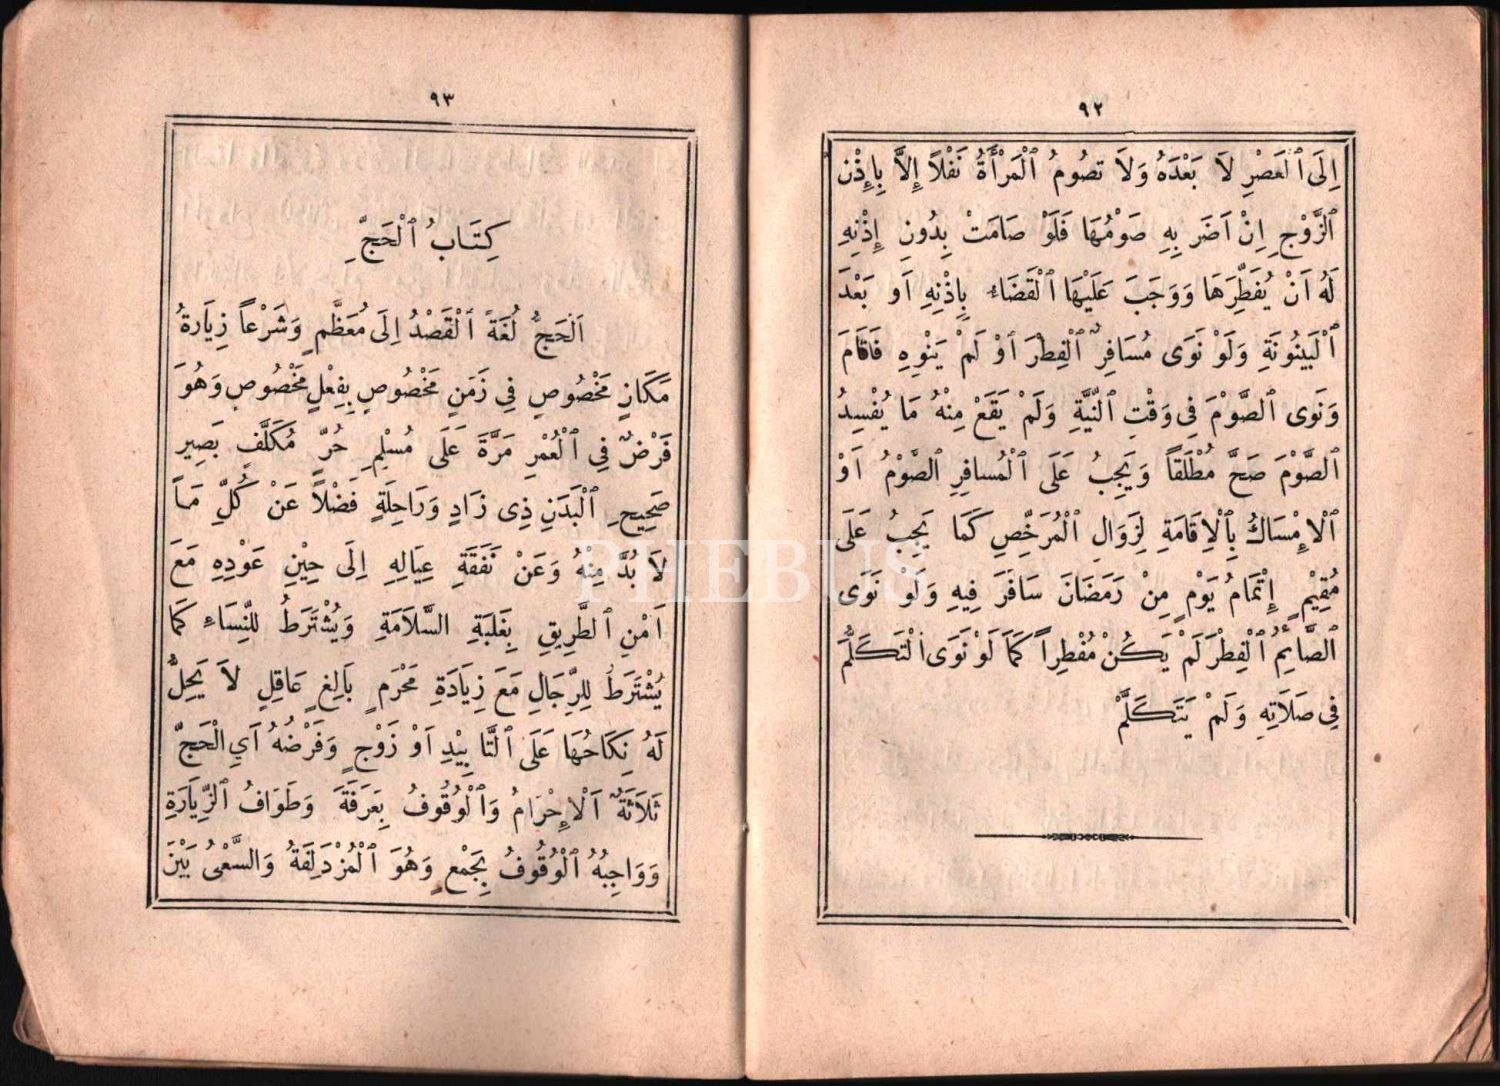 ٩٢
إِلَى ٱلْعَصْرِ لَا بَعْدَهُ وَلَا تَصُومُ ٱلْمَرْأَةُ نَفْلًا إِلَّا بِإِذْنِ
ٱلزَّوْجِ إِنْ اَضَرَ بِهِ صَوْمُهَا فَلَوْ صَامَتْ بِدُونِ إِذْنِهِ
لَهُ اَنْ يُفَطِّرَهَا وَوَجَبَ عَلَيْهَا ٱلْقَضَاءُ بِإِذْنِهِ اَوْ بَعْدَ
ٱلْبَيْنُونَةِ وَلَوْ نَوَى مُسَافِرٌ ٱلْفِطْرَ أَوْ لَمْ يَنْوِهِ فَاَقَامَ
وَنَوَى ٱلصَّوْمَ فِى وَقْتِ ٱلنِّيَّةِ وَلَمْ يَقَعْ مِنْهُ مَا يُفْسِدُ
ٱلصَّوْمَ صَحَّ مُطْلَقًا وَيَجِبُ عَلَى ٱلْمُسَافِرِ ٱلصَّوْمُ اَوْ
ٱلْاِمْسَاكُ بِٱلْاِقَامَةِ لِزَوَالِ ٱلْمُرَخِّصِ كَمَا يَجِبُ عَلَى
مُقِيْمٍ إِتْمَامُ يَوْمٍ مِنْ رَمَضَانَ سَافَرَ فِيهِ وَلَوْ نَوَى
ٱلصَّائِمُ ٱلْفِطْرَ لَمْ يَكُنْ مُفْطِرًا كَمَا لَوْ نَوَى ٱلْتَكَلُّمَ
فِى صَلَاتِهِ وَلَمْ يَتَكَلَّمْ
٩٣
كِتَابُ ٱلْحَجِّ
اَلْحَجُّ لُغَةً ٱلْقَصْدُ اِلَى مُعَظَّمٍ وَشَرْعًا زِيَارَةُ
مَكَانٍ مَخْصُوصٍ فِى زَمَنٍ مَخْصُوصٍ بِفِعْلٍ مَخْصُوصٍ وَهُوَ
فَرْضٌ فِى ٱلْعُمْرِ مَرَّةً عَلَى مُسْلِمٍ حُرٍّ مُكَلَّفٍ بَصِيرٍ
صَحِيحِ ٱلْبَدَنِ ذِى زَادٍ وَرَاحِلَةٍ فَضْلًا عَنْ كُلِّ مَا
لَا بُدَّ مِنْهُ وَعَنْ نَفَقَةِ عِيَالِهِ اِلَى حِيْنِ عَوْدِهِ مَعَ
اَمْنِ ٱلطَّرِيقِ بِغَلَبَةِ ٱلسَّلَامَةِ وَيُشْتَرَطُ لِلنِّسَاءِ كَمَا
يُشْتَرَطُ لِلرِّجَالِ مَعَ زِيَادَةِ مَحْرَمٍ بَالِغٍ عَاقِلٍ لَا يَحِلُّ
لَهُ نِكَاحُهَا عَلَى ٱلتَّابِيْدِ اَوْ زَوْجٍ وَفَرْضُهُ اَيِ ٱلْحَجِّ
ثَلَاثَةٌ اَلْاِحْرَامُ وَٱلْوُقُوفُ بِعَرَفَةَ وَطَوَافُ ٱلزِّيَارَةِ
وَوَاجِبُهُ ٱلْوُقُوفُ بِجَمْعٍ وَهُوَ ٱلْمُزْدَلِفَةُ وَالسَّعْىُ بَيْنَ
PHEBUS